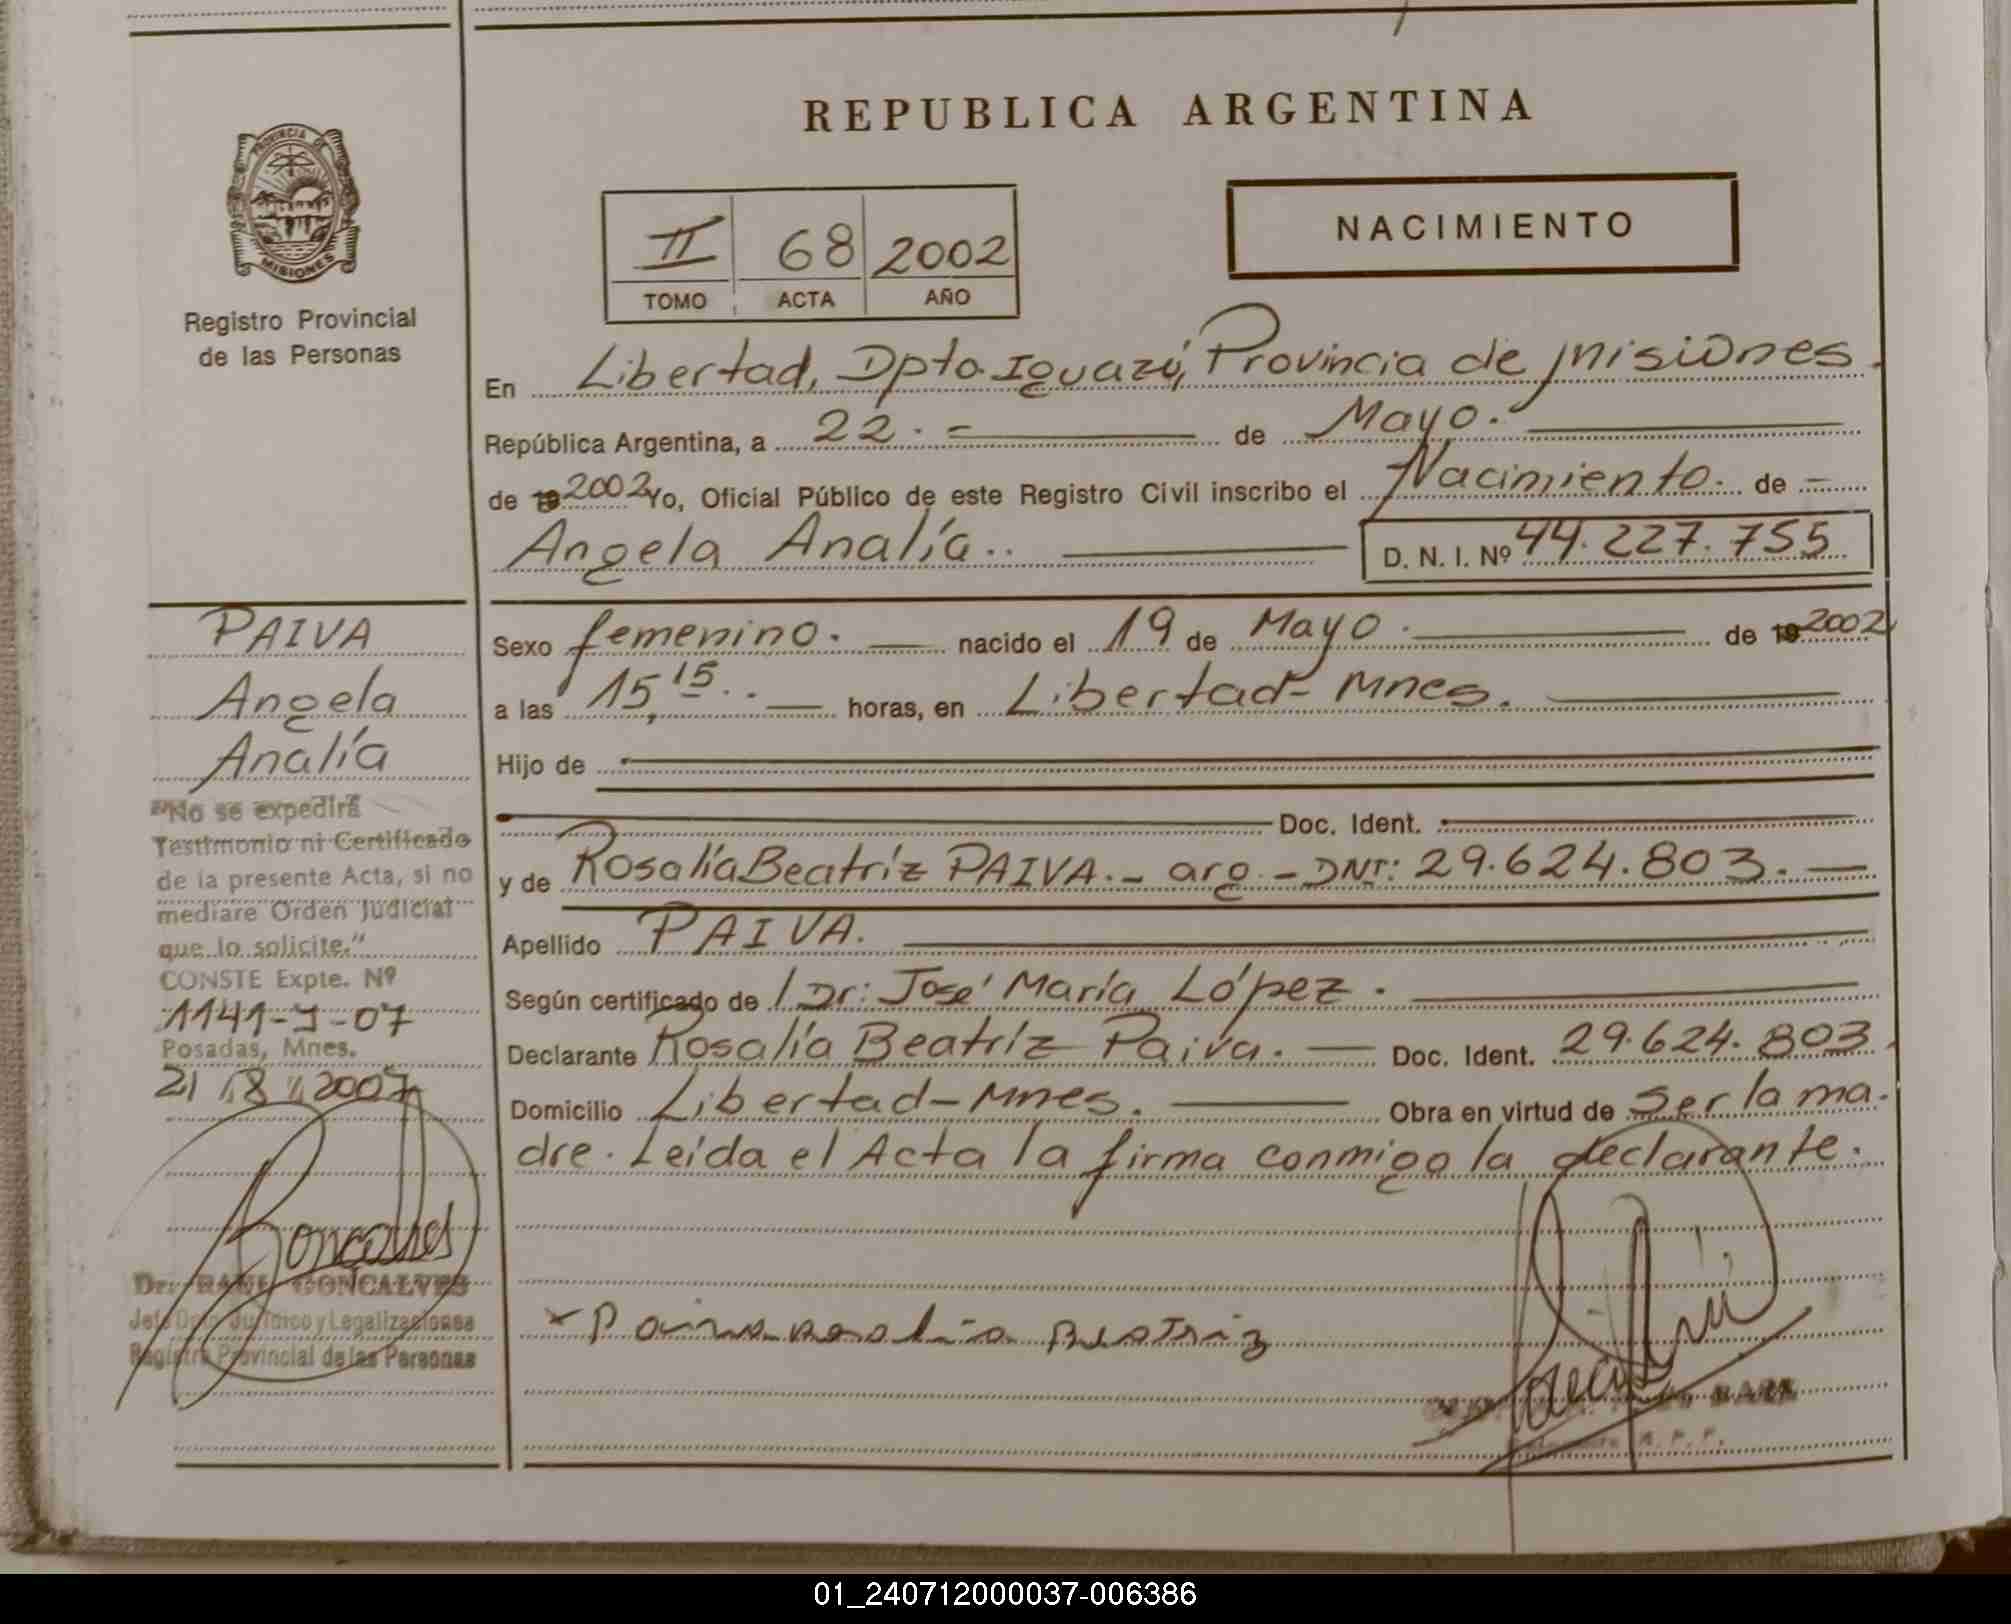 REPUBLICA ARGENTINA
PROVINCIA DE
MISIONES
Registro Provincial
de las Personas
II 68 2002
TOMO ACTA AÑO
NACIMIENTO
En Libertad, Dpto. Iguazú, Provincia de Misiones.
República Argentina, a 22.- de Mayo.
de 19 2002 Yo, Oficial Público de este Registro Civil inscribo el Nacimiento. de -
Angela Analía..
D. N. I. Nº 44.227.755
Sexo femenino. nacido el 19 de Mayo. de 19 2002
a las 15,15.. horas, en Libertad-Mnes.
Hijo de
Doc. Ident.
y de Rosalía Beatríz PAIVA.- arg.- DNI: 29.624.803.
Apellido PAIVA.
Según certificado de / Dr: José María López.
Declarante Rosalía Beatríz Paiva. Doc. Ident. 29.624.803.
Domicilio Libertad-Mnes. Obra en virtud de Ser la ma-
dre. Leída el Acta la firma conmigo la declarante.
x Paiva Rosalia Beatriz
PAIVA
Angela
Analía
"No se expedirá
Testimonio ni Certificado
de la presente Acta, si no
mediare Orden Judicial
que lo solicite."
CONSTE Expte. Nº
1141-J-07
Posadas, Mnes.
21/8/2007
Goncalves
Dr. RAUL GONCALVES
Jefe Dpto. Jurídico y Legalizaciones
Registro Provincial de las Personas
01_240712000037-006386